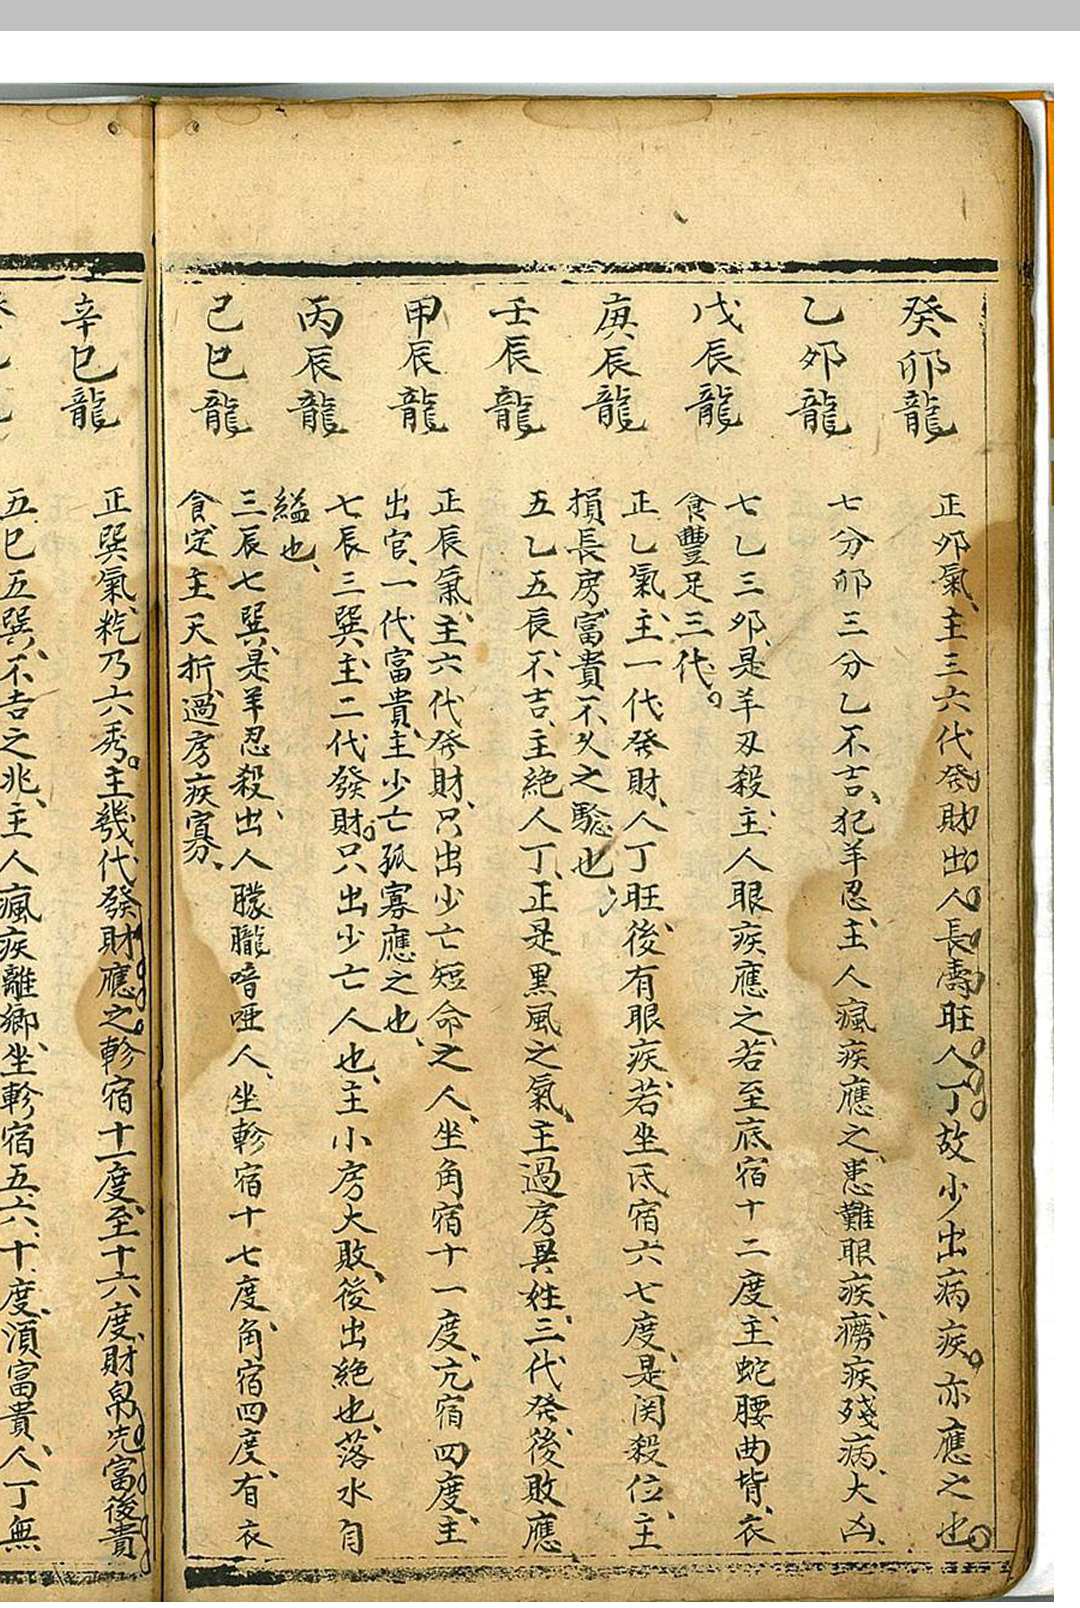 癸卯龍 正卯氣、主三六代發財出人長壽旺人丁故少出病疾。亦應之也。
乙卯龍 七分卯三分乙不吉、犯羊忍、主人瘋疾應之、患難眼疾、癆疾殘病、大凶、
戊辰龍 七乙三卯、是羊刄殺、主人眼疾應之、若至底宿十二度、主蛇腰曲背、衣
食豐足三代。
庚辰龍 正乙氣、主一代發財、人丁旺後、有眼疾、若坐氐宿六七度、是関殺位、主
損長房、富貴不久之驗也、
壬辰龍 五乙五辰、不吉、主絶人丁、正是黑風之氣、主過房異姓、三代發、後敗應
甲辰龍 正辰氣、主六代發財、只出少亡短命之人、坐角宿十一度、亢宿四度、主
出官、一代富貴、主少亡孤寡應之也、
丙辰龍 七辰三巽、主二代發財。只出少亡人也、主小房大敗、後出絶也、落水自
縊也、
己巳龍 三辰七巽、是羊忍殺、出人朦朧喑啞人、坐軫宿十七度、角宿四度、有衣
食、定主夭折、過房疾寡、
辛巳龍 正巽氣、乃六秀。主幾代發財應之、軫宿十一度、至十六度、財帛先富後貴
五巳五巽、不吉之兆、主人瘋疾離鄉、坐軫宿五六、十度、須富貴、人丁無